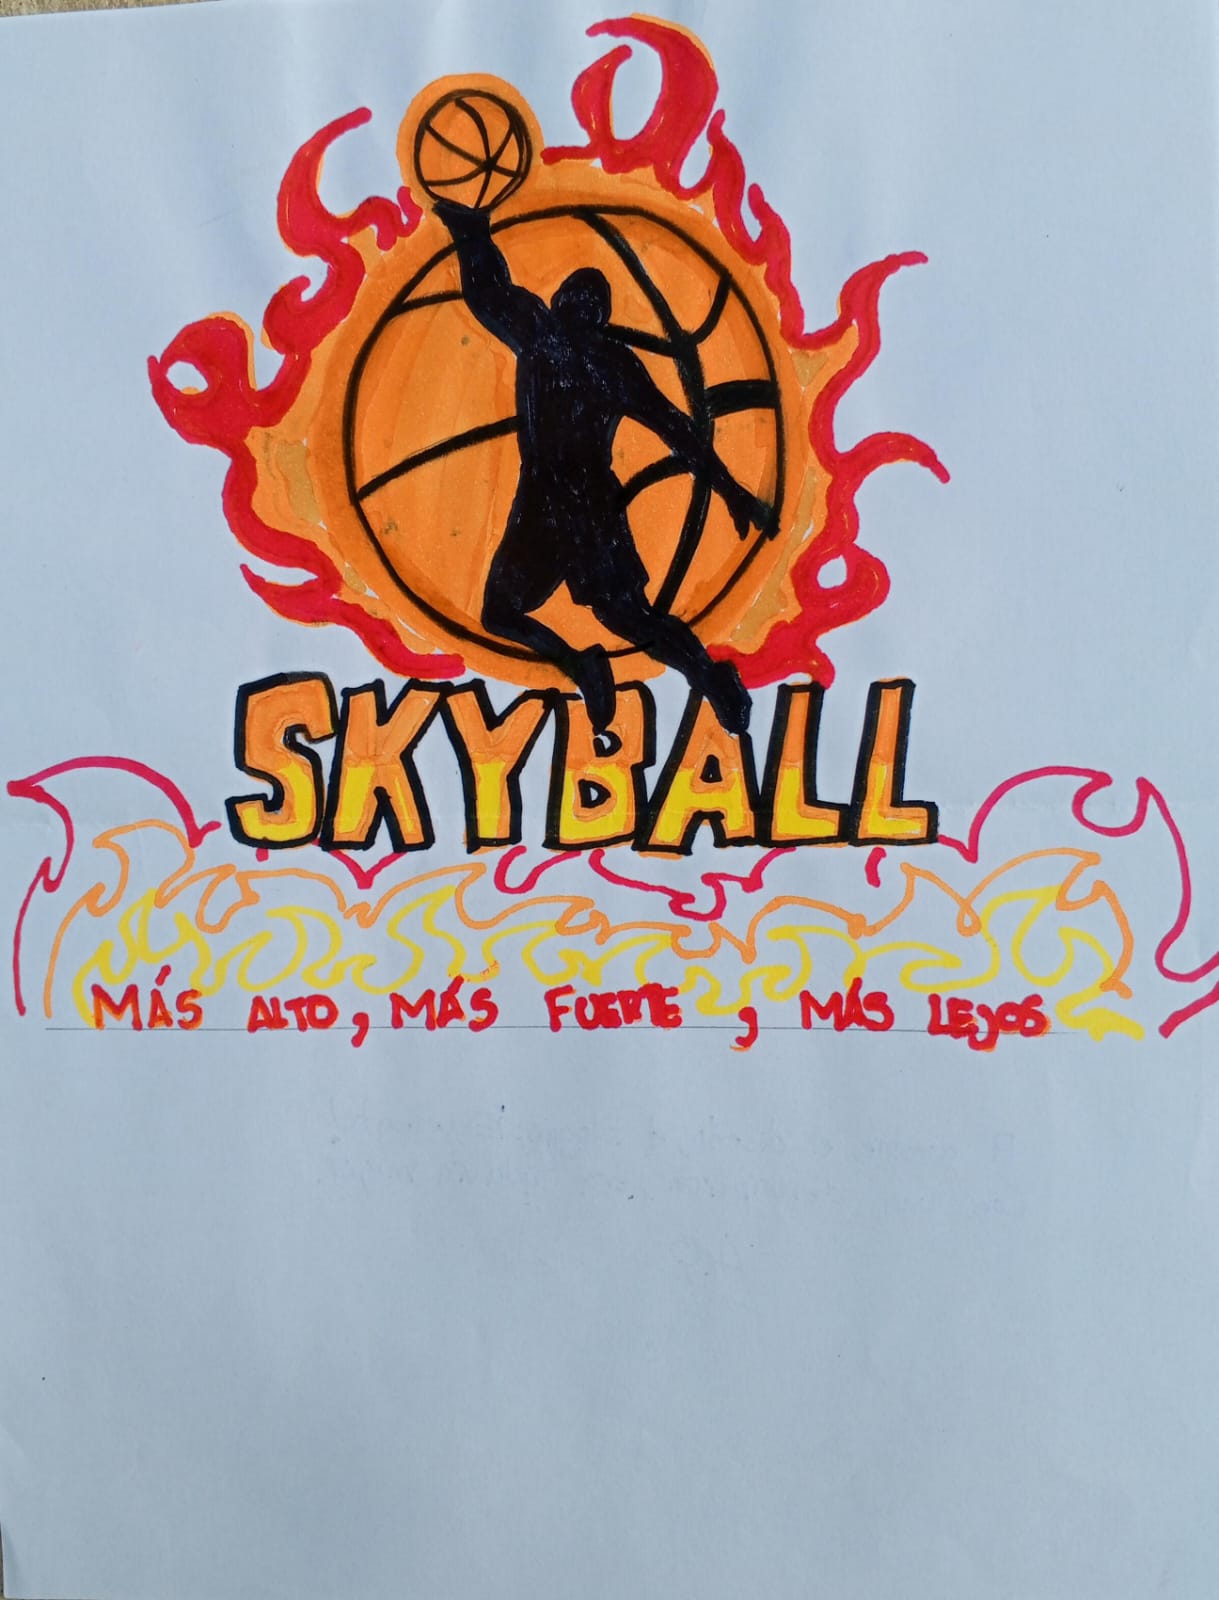 SKYBALL
MÁS ALTO, MÁS FUERTE, MÁS LEJOS